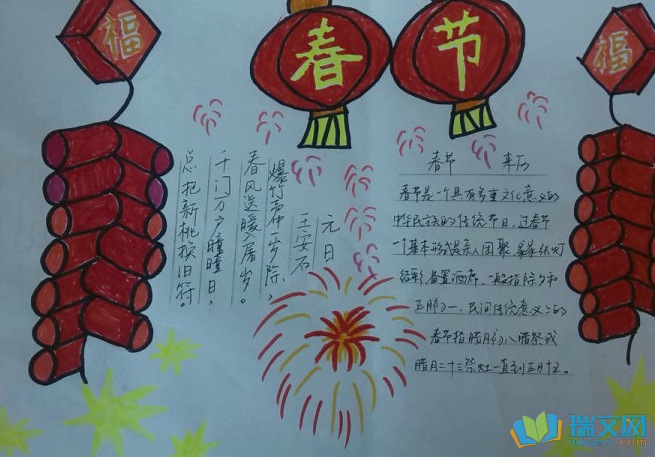 福
春节
福
元日
王安石
爆竹声中一岁除，
春风送暖入屠苏。
千门万户曈曈日，
总把新桃换旧符。
春节 来历
春节是一个具有多重文化意义的
民族的传统节日，过春节
一个基本形式是亲人团聚
结彩，备置酒席，一般指除夕和
正月初一，民间传统意义上的
春节指腊月初八腊祭或
腊月二十三祭灶一直到正月十五。
瑞文网